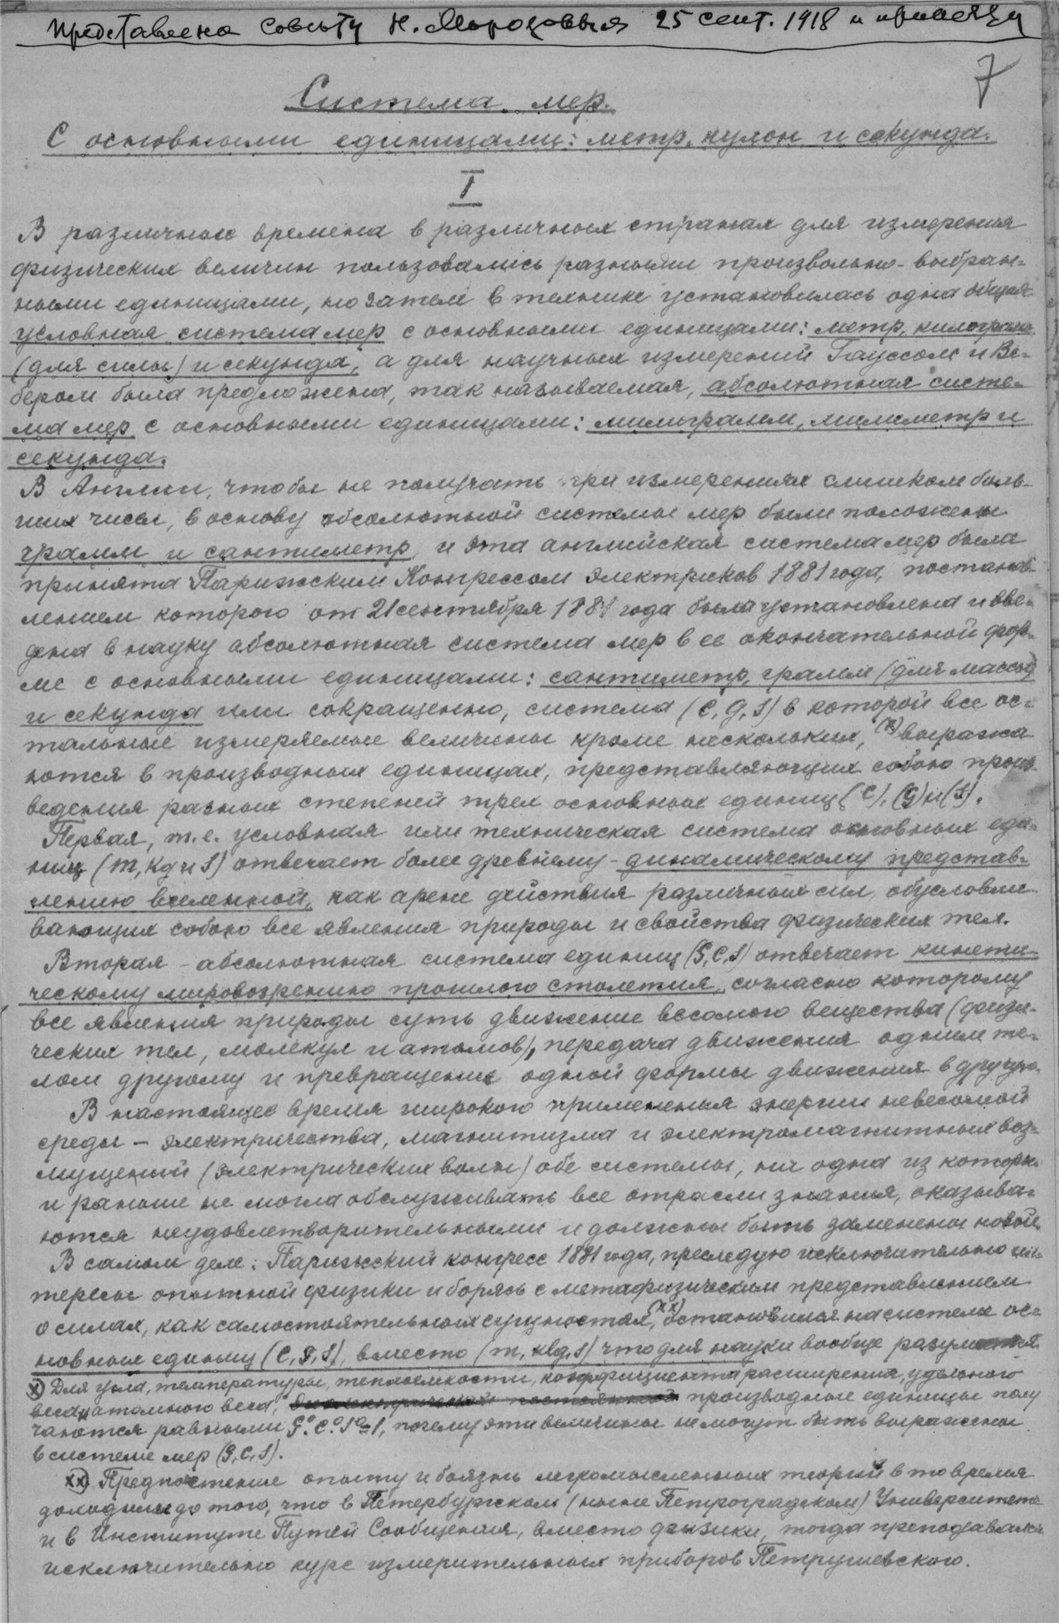 Представлена Совету Н. Морозовым 25 сент. 1918 и
7
Система мер.
С основными единицами: метр, кулон и секунда.
I
В различные времена в различных странах для измерения
физических величин пользовались разными произвольно-выбран-
ными единицами, но затем в технике установилась одна общая
условная система мер с основными единицами: метр, килограмм
(для силы) и секунда, а для научных измерений Гауссом и Ве-
бером была предложена, так называемая, абсолютная систе-
ма мер с основными единицами: милиграмм, милиметр и
секунда.
В Англии, чтобы не получать при измерениях слишком боль-
ших чисел, в основу абсолютной системы мер были положены
грамм и сантиметр, и эта английская система мер была
принята Парижским Конгрессом электриков 1881 года, постанов-
лением которого от 21 сентября 1881 года была установлена и вве-
дена в науку абсолютная система мер в ее окончательной фор-
ме с основными единицами: сантиметр, грамм (для массы)
и секунда или сокращенно, система (C, g, S) в которой все ос-
тальные измеряемые величины кроме нескольких, (x) выража
ются в производных единицах, представляющих собою произ-
ведения разных степеней трех основных единиц (C), (g) и (S).
Первая, т.е. условная или техническая система основных еди-
ниц (m, kg и S) отвечает более древнему - динамическому представ-
лению вселенной, как арене действия различных сил, обусловли-
вающих собою все явления природы и свойства физических тел.
Вторая - абсолютная система единиц (g, C, S) отвечает кинети-
ческому мировозрению прошлого столетия, согласно которому
все явления природы суть движение весомого вещества (физи-
ческих тел, молекул и атомов), передача движения одним те-
лом другому и превращение одной формы движения в другую.
В настоящее время широкого применения энергии невесомой
среды - электричества, магнитизма и электромагнитных воз-
мущений (электрических волн) обе системы, ни одна из которых
и раньше не могла обслуживать все отрасли знания, оказыва-
ются неудовлетворительными и должны быть заменены новой.
В самом деле: Парижский конгресс 1881 года, преследуя исключительно ин-
тересы опытной физики и борясь с метафизическим представлением
о силах, как самостоятельных сущностях, (xx) остановился на системе ос-
новных единиц (C, g, S), вместо (m, kg, S) что для науки вообще
x) Для угла, температуры, теплоемкости, коэффициента расширения, удельного
веса, атомного веса, производные единицы полу
чаются равными g° C° S° = 1, почему эти величины не могут быть выражены
в системе мер (g, C, S).
xx) Предпочтение опыту и боязнь легкомысленных теорий в то время
доходили до того, что в Петербургском (ныне Петроградском) Университете
и в Институте Путей Сообщения, вместо физики, тогда преподавался
исключительно курс измерительных приборов Петрушевского.